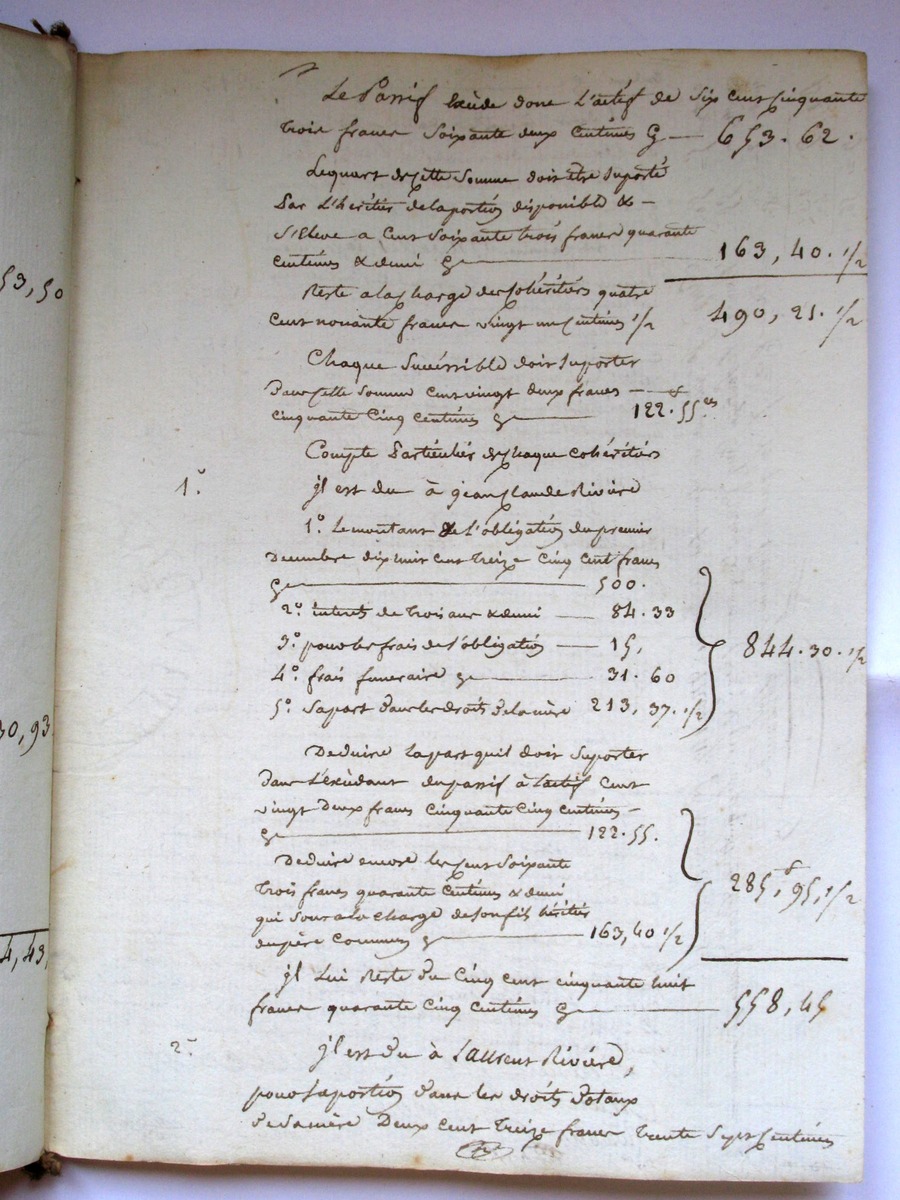 53,50
30,93
4,43,
Le Passif Exède donc L'actif de Six cent cinquante
trois francs Soixante deux Centimes Cy — 653. 62.
Le quart de cette Somme doit être Suporté
Par L'héritier de la portion disponible &
S'Eleve a Cent Soixante trois francs quarante
centimes & demi Cy — 163, 40. 1/2
Reste a la charge des cohéritiers quatre
cent nonante francs vingt un centimes 1/2 490, 21. 1/2
Chaque Successible doit Suporter
Dans cette Somme cent vingt deux francs —
cinquante Cinq centimes Cy — 122 f. 55 es
Compte Particulier de chaque cohéritiers
1°. jl est du à jean Claude Rivière
1°. Le montant de l'obligation du premier
Decembre dix huit cent treize Cinq Cent francs
Cy — 500.
2° interets de trois ans & demi — 84. 33
3° pour les frais de l'obligation — 15,
4°. frais funeraire Cy — 31. 60
5° Sa part dans les droits de la mère 213, 37. 1/2
844. 30. 1/2
Deduire la part quil doit Suporter
Dans L'exèdant du passif à l'actif Cent
vingt Deux francs Cinquante Cinq Centimes —
Cy — 122. 55.
Deduire encore les cent Soixante
trois francs quarante Centimes & demi
qui Sont a la charge de Son fils héritier
du père Commun Cy — 163, 40 1/2
285 f, 95, 1/2
jl Lui Reste du Cinq cent cinquante huit
francs quarante Cinq Centimes Cy — 558, 45
2°. jl est du à Laurent Rivière,
pour Sa portion dans les droits dotaux
de Sa mère Deux cent treize francs trente Sept Centimes